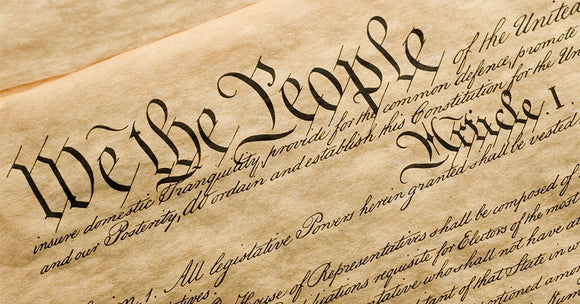 We the People of the United
insure domestic Tranquility, provide for the common defence, promote
and our Posterity, do ordain and establish this Constitution for the Un
Article. I.
n. 1. All legislative Powers herein granted shall be vested
House of Representatives shall be composed of
ations requisite for Electors of the most
ntative who shall not have a
tant of that State in w